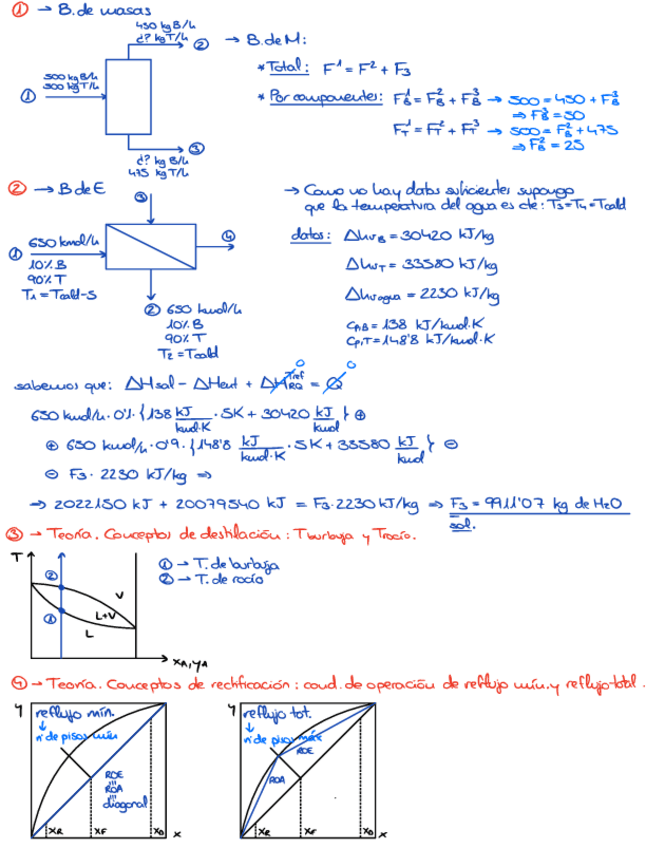 ① → B. de masas
450 kg B/h
¿? kg T/h
②
→ B. de M:
500 kg B/h
500 kg T/h
①
* Total: F¹ = F² + F₃
* Por componentes: F¹B = F²B + F³B → 500 = 450 + F³B
⇒ F³B = 50
F¹T = F²T + F³T → 500 = F²B + 475
⇒ F²B = 25
③
¿? kg B/h
475 kg T/h
② → B de E
③
→ Como no hay datos suficientes supongo
que la temperatura del agua es cte: T₃ = T₄ = Tcald
④
① 650 kmol/h
10% B
90% T
T₁ = Tcald - 5
datos: Δhv B = 30420 kJ/kg
Δhv T = 33580 kJ/kg
Δhv agua = 2230 kJ/kg
Cp,B = 138 kJ/kmol·K
Cp,T = 148'8 kJ/kmol·K
② 650 kmol/h
10% B
90% T
T₂ = Tcald
sabemos que: ΔHsal - ΔHent + ΔH Tref RQ 0 = Q 0
650 kmol/h · 0'1 · {138 kJ/kmol·K · 5K + 30420 kJ/kmol} ⊕
⊕ 650 kmol/h · 0'9 · {148'8 kJ/kmol·K · 5K + 33580 kJ/kmol} ⊖
⊖ F₃ · 2230 kJ/kg ⇒
⇒ 2022150 kJ + 20079540 kJ = F₃ · 2230 kJ/kg ⇒ F₃ = 9911'07 kg de H₂O
sol.
③ → Teoría. Conceptos de destilación: Tburbuja y Trocío.
T
① → T. de burbuja
② → T. de rocío
②
V
L+V
①
L
xA, yA
④ → Teoría. Conceptos de rectificación: cond. de operación de reflujo mín. y reflujo total.
y reflujo mín.
↓
nº de pisos mín
ROE
≡
ROA
≡
diagonal
xR xF xD x
y reflujo tot.
↓
nº de pisos máx
ROE
ROA
xR xF xD x